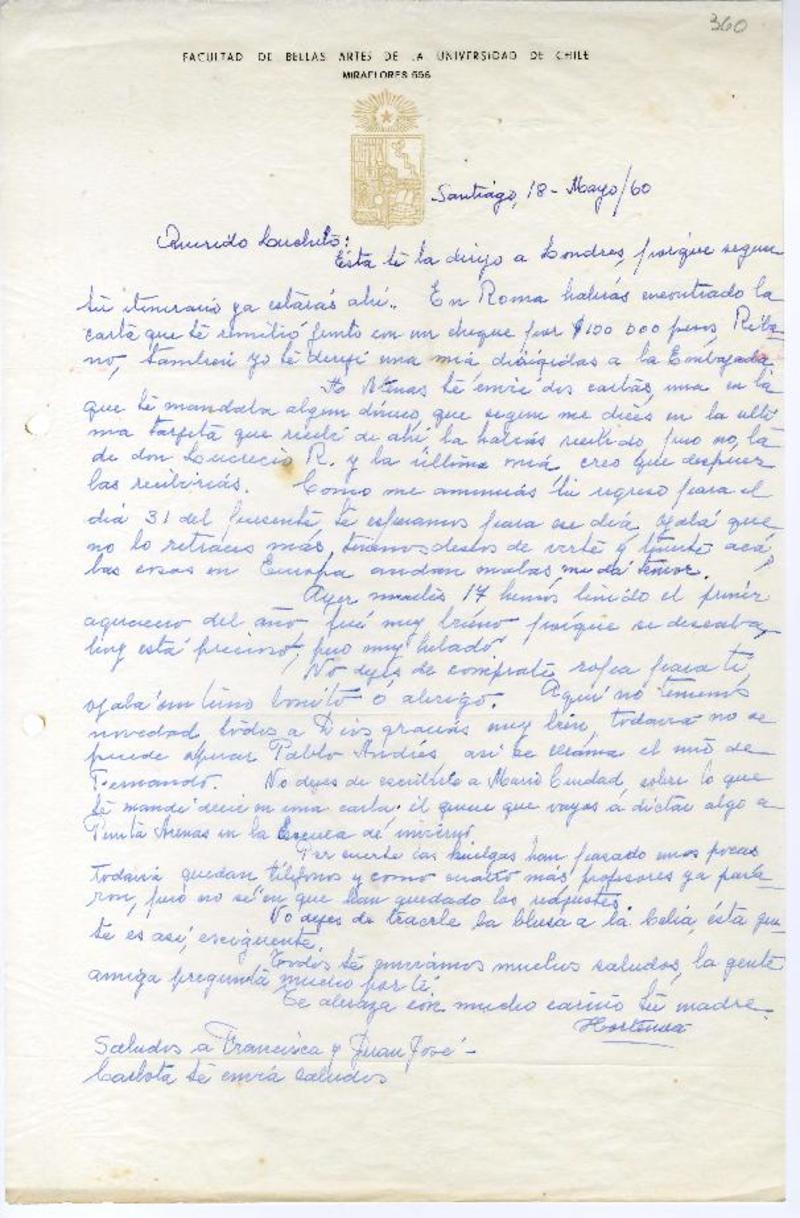 360
FACULTAD DE BELLAS ARTES DE LA UNIVERSIDAD DE CHILE
MIRAFLORES 556
Santiago, 18 - Mayo/60
Querido Luchito:
Esta te la dirijo a Londres, porque segun
tu itinerario ya estarás ahí.. En Roma habrás encontrado la
carta que te remitió junto con un cheque por $100 000 pesos,
no, tambien yo te dirigí una mía dirigidas a la Embajada.
A Atenas te envié dos cartas, una en la
que te mandaba algun dinero, que segun me dices en la ulti
ma tarjeta que recibí de ahí la habías recibido pero no, la
de don Lucrecio R. y la última mía, creo que despues
las recibirías. Como me anuncias tu regreso para el
día 31 del presente, te esperamos para ese día, ojalá que
no lo retraces más, tenemos deseos de verte y tenerte acá,
las cosas en Europa andan malas, me da temor.
Ayer martes 17 hemos tenido el primer
aguacero del año fué muy bueno porque se deseaba,
hoy está precioso, pero muy helado.
No dejes de comprarte ropa para tí,
ojalá un terno bonito ó abrigo. Aquí no tenemos
novedad todos a Dios gracias muy bien, todavía no se
puede Pablo Andrés, así se llama el niño de
Fernando. No dejes de escribirle a Mario Ciudad, sobre lo que
te mandé decir en una carta; él quiere que vayas a dictar algo a
Punta Arenas en la Escuela de invierno.
Por suerte las huelgas han pasado unas pocas
todavía quedan teléfonos y como cuatro más, profesores ya para-
ron, pero no sé en que han quedado los reajustes.
No dejes de traerle la blusa a la Celia, ésta gen-
te es así, exigente.
Todos te enviamos muchos saludos, la gente
amiga pregunta mucho por tí.
Te abraza con mucho cariño tu madre.
Hortensia
Saludos a Francisca y Juan José -
Carlota te envía saludos